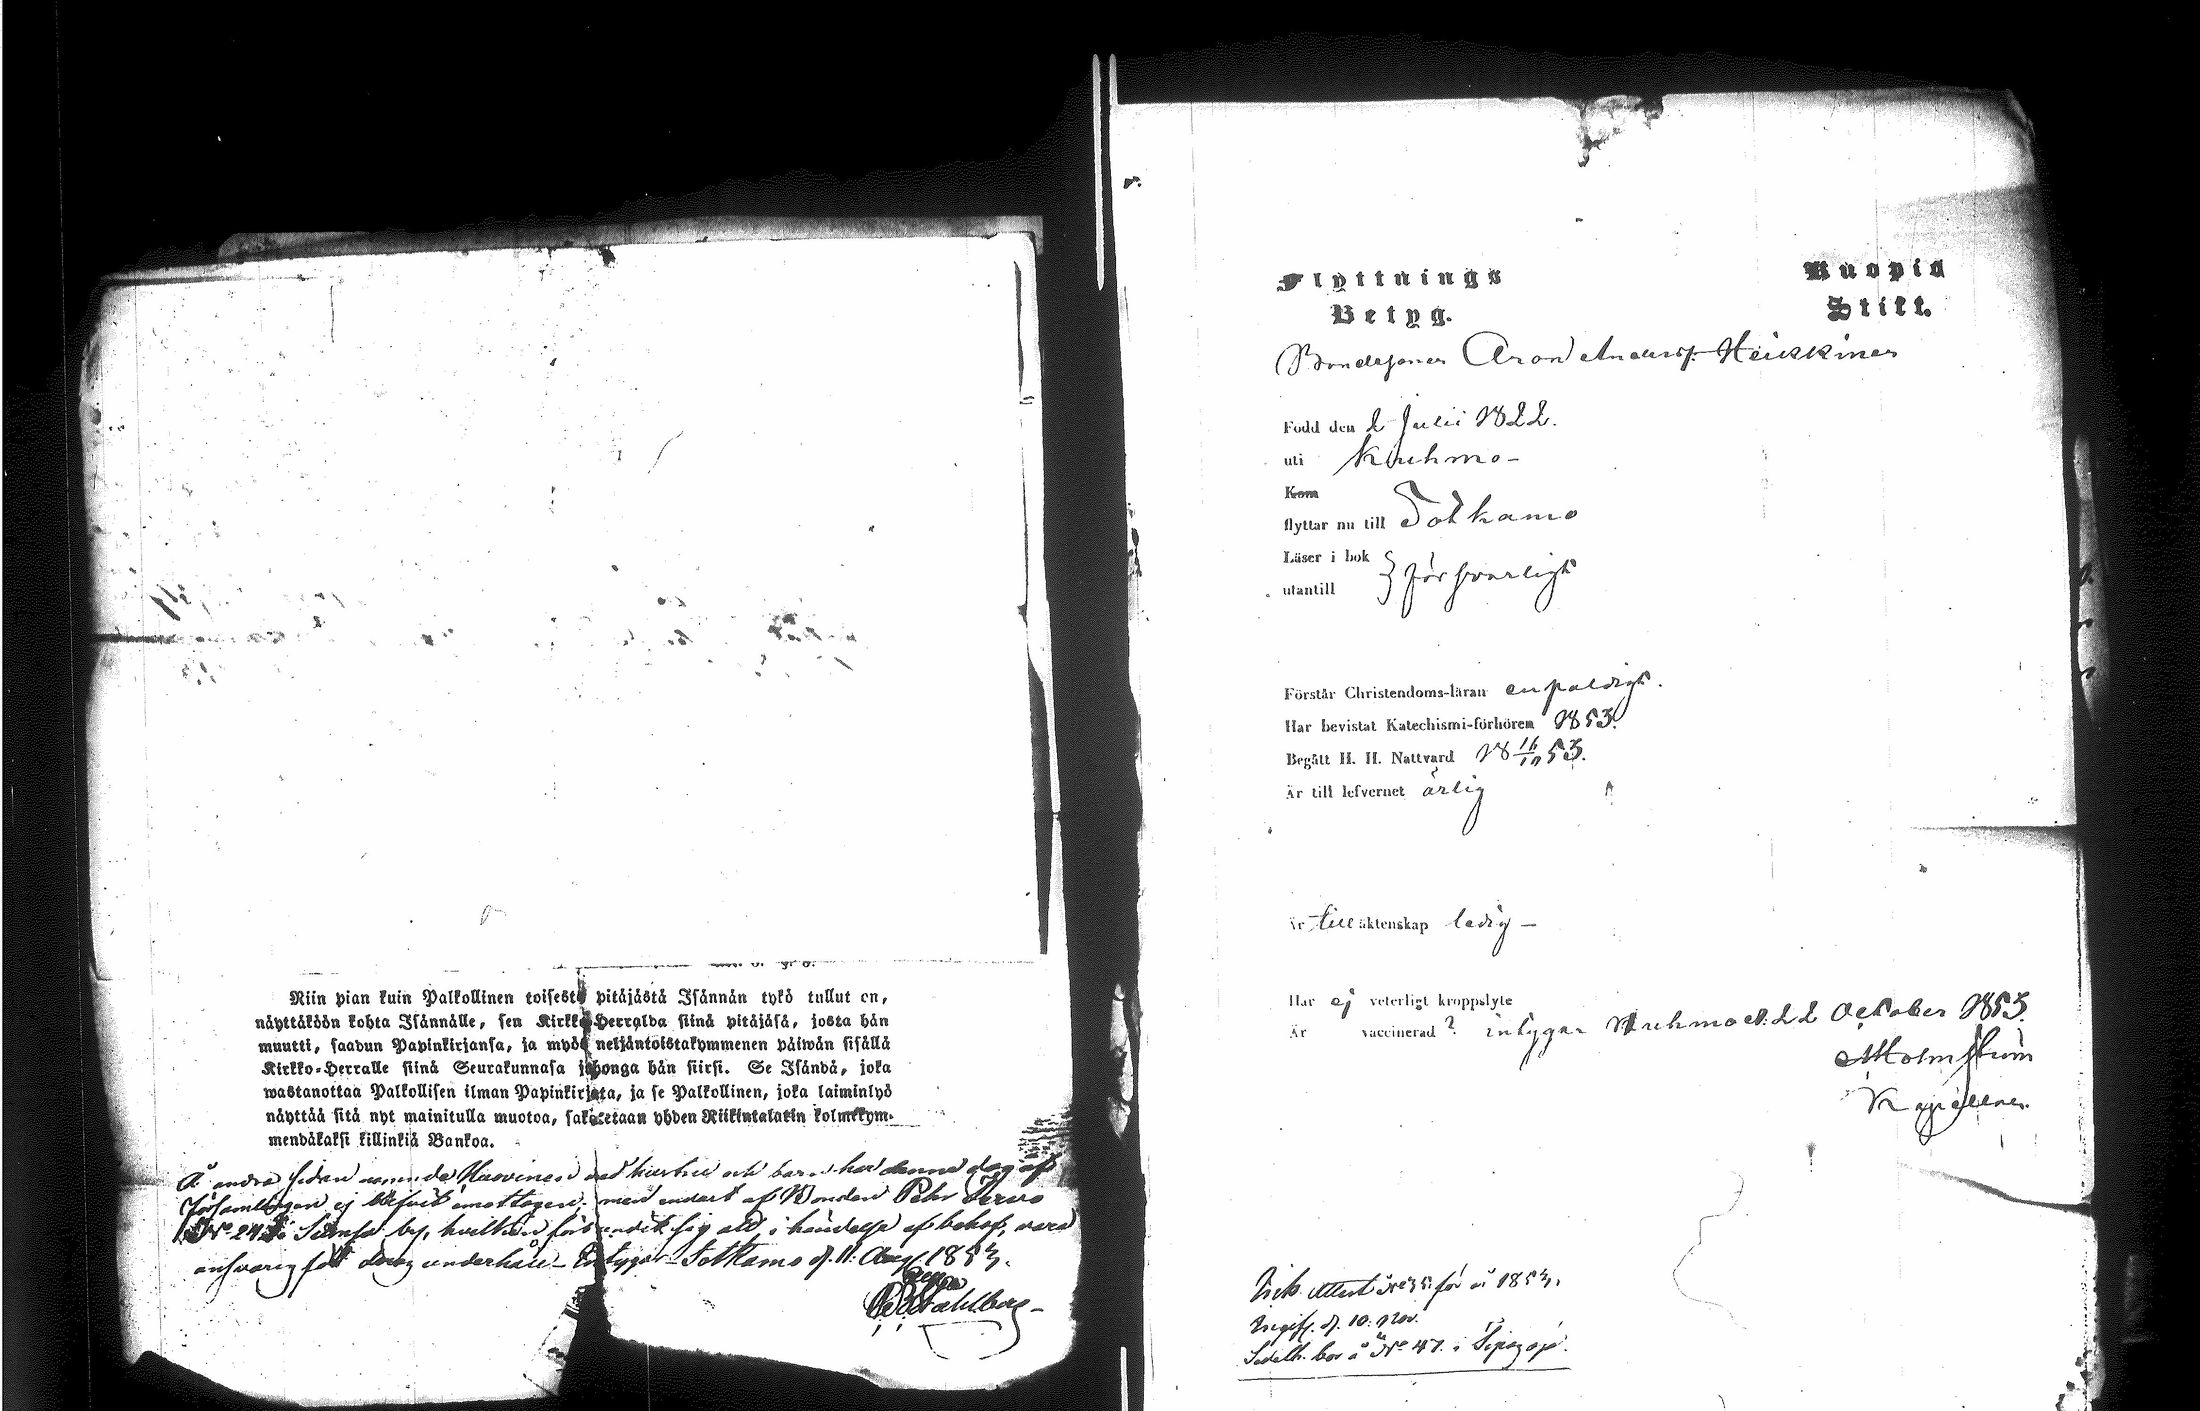 Niin pian kuin Palkollinen toisesta pitäjästä Isännän tykö tullut on,
näyttäköön kohta Isännälle, sen Kirkko-Herralda siinä pitäjäsä, josta hän
muutti, saadun Papinkirjansa, ja myös neljäntoistakymmenen päiwän sisällä
Kirkko-Herralle siinä Seurakunnasa johonga hän siirsi. Se Isändä, joka
wastanottaa Palkollisen ilman Papinkirjata, ja se Palkollinen, joka laiminlyö
näyttää sitä nyt mainitulla muotoa, sakoitetaan yhden Riikintalarin kolmekym-
mendäkaksi killinkiä Bankoa.
Å andra sidan nämnda Huovinen med hustru och barn har denna dag af
Församlingen ej blifvit emottagen, men endast af Bonden Pehr Tervo
N:o 24 i Sumsa by, hvilken förbundit sig att, i händelse af behof, vara
ansvarig för deras underhåll. Intygar Sotkamo d. 11. Aug. 1853.
Wahlberg
Flyttnings
Betyg.
Kuopio
Stift.
Bondesonen Aron Andersson Heikkinen
Född den 2 Julii 1822.
uti Kuhmo
Kom
flyttar nu till Sotkamo
Läser i bok
utantill } försvarligt
Förstår Christendoms-läran enfaldigt.
Har bevistat Katechismi-förhören 1853.
Begått H. H. Nattvard 18 16/10 53.
Är till lefvernet ärlig
Är till äktenskap ledig
Har ej veterligt kroppslyte
Är vaccinerad? intygar Kuhmo d. 22 October 1853.
Holmström
Kapellan.
Attest N:o 35 för år 1853.
d. 10. Nov.
bor å N:o 47. i